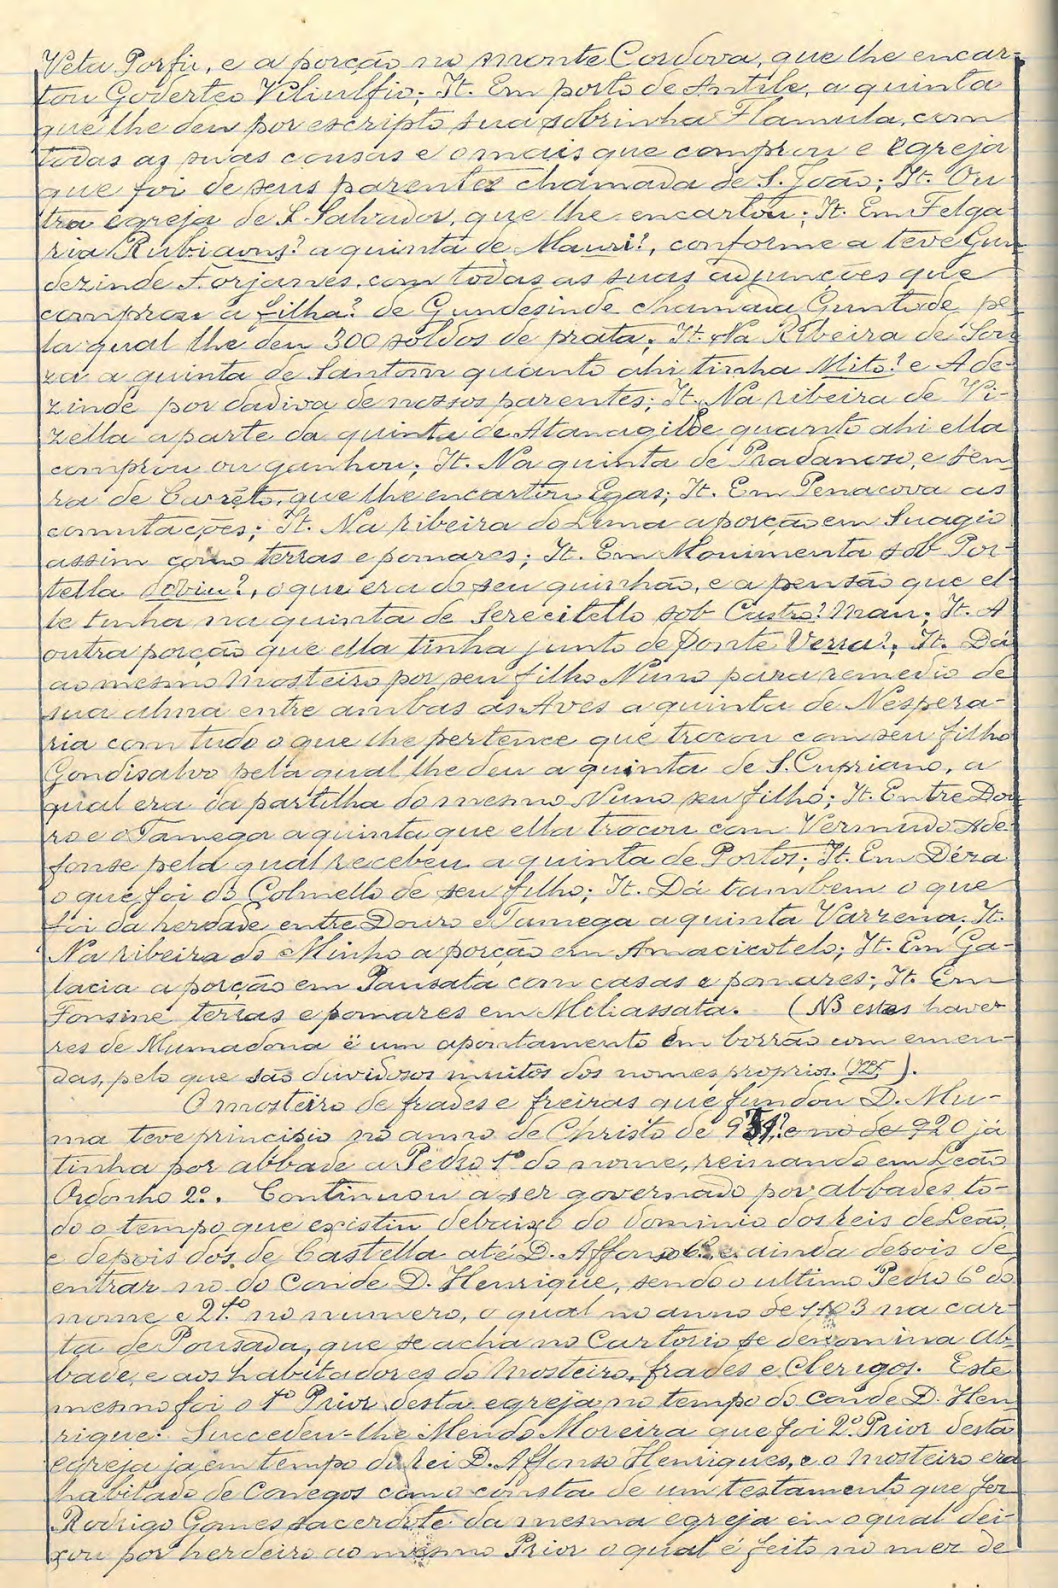 Veta Porfu, e a porção no monte Cordova, que lhe encar-
tou Goderteo Viliulfio; It. Em porto de Antile, a quinta
que lhe deu por escripto sua sobrinha Flamula, com
todas as suas cousas e o mais que comprou e egreja
que foi de seus parentes chamada de S. João; It. Ou-
tra egreja de S. Salvador, que lhe encartou; It. Em Felga-
ria Rubians? a quinta de Mauri?, conforme a teve Gun-
dezinde Forjanes, com todas as suas adjunções que
comprou a filha? de Gundesinde chamada Guntode pe-
la qual lhe deu 300 soldos de prata; It. Na Ribeira de Sou-
za a quinta de Santom quanto ahi tinha Mito? e Ade-
zinde por dadiva de nossos parentes; It. Na ribeira de Vi-
zella a parte da quinta de Atanagilde quanto ahi ella
comprou ou ganhou; It. Na quinta de Pradanoso, e sen-
ra de Carrêto, que lhe encartou Egas; It. Em Penacova as
comutações; It. Na ribeira do Lima a porção em Suagio
assim como terras e pomares; It. Em Mouimenta sob Por-
tella doviu?, o que era do seu quinhão, e a pensão que el-
le tinha na quinta de Serecitello sob Castro? Mau; It. A
outra porção que ella tinha junto de Ponte Verra?; It. Dá
ao mesmo Mosteiro por seu filho Nuno para remedio de
sua alma entre ambas as Aves a quinta de Nespera-
ria com tudo o que lhe pertence que trocou com seu filho
Gondisalvo pela qual lhe deu a quinta de S. Cupriano, a
qual era da partilha do mesmo Nuno seu filho; It. Entre Dou-
ro e o Tamega a quinta que ella trocou com Vermudo Ade-
fonse pela qual recebeu a quinta de Portos; It. Em Déza
o que foi do Colmello de seu filho; It. Dá tambem o que
foi da herdade entre Douro e Tamega a quinta Varzena; It.
Na ribeira do Minho a porção em Amacicotelo; It. Em Ga-
lacia a porção em Pausata com casas e pomares; It. Em
Fonsine terras e pomares em Moliassata. (NB estes haver-
res de Mumadona é um apontamento em borrão com emen-
das, pelo que são duvidosos muitos dos nomes proprios. ).
O mosteiro de frades e freiras que fundou D. Mu-
ma teve principio no anno de Christo de e no de 920 já
tinha por abbade a Pedro 1º do nome, reinando em Leão
Ordonho 2º. Continuou a ser governado por abbades to-
do o tempo que existiu debaixo do dominio dos reis de Leão,
e depois dos de Castella até D. Affonso 6º e ainda depois de
entrar no do Conde D. Henrique, sendo o ultimo Pedro 6º do
nome e 21º no numero, o qual no anno de 1103 na car-
ta de Pousada, que se acha no Cartorio se denomina Ab-
bade, e aos habitadores do Mosteiro, frades e Clerigos. Este
mesmo foi o 1º Prior desta egreja no tempo do conde D. Hen-
rique. Succedeu-lhe Mendo Moreira que foi 2º Prior desta
egreja já em tempo do rei D. Affonso Henriques, e o Mosteiro era
habitado de Conegos como consta de um testamento que fez
Rodrigo Gomes sacerdote da mesma egreja em o qual dei-
xou por herdeiro ao mesmo Prior o qual é feito no mez de